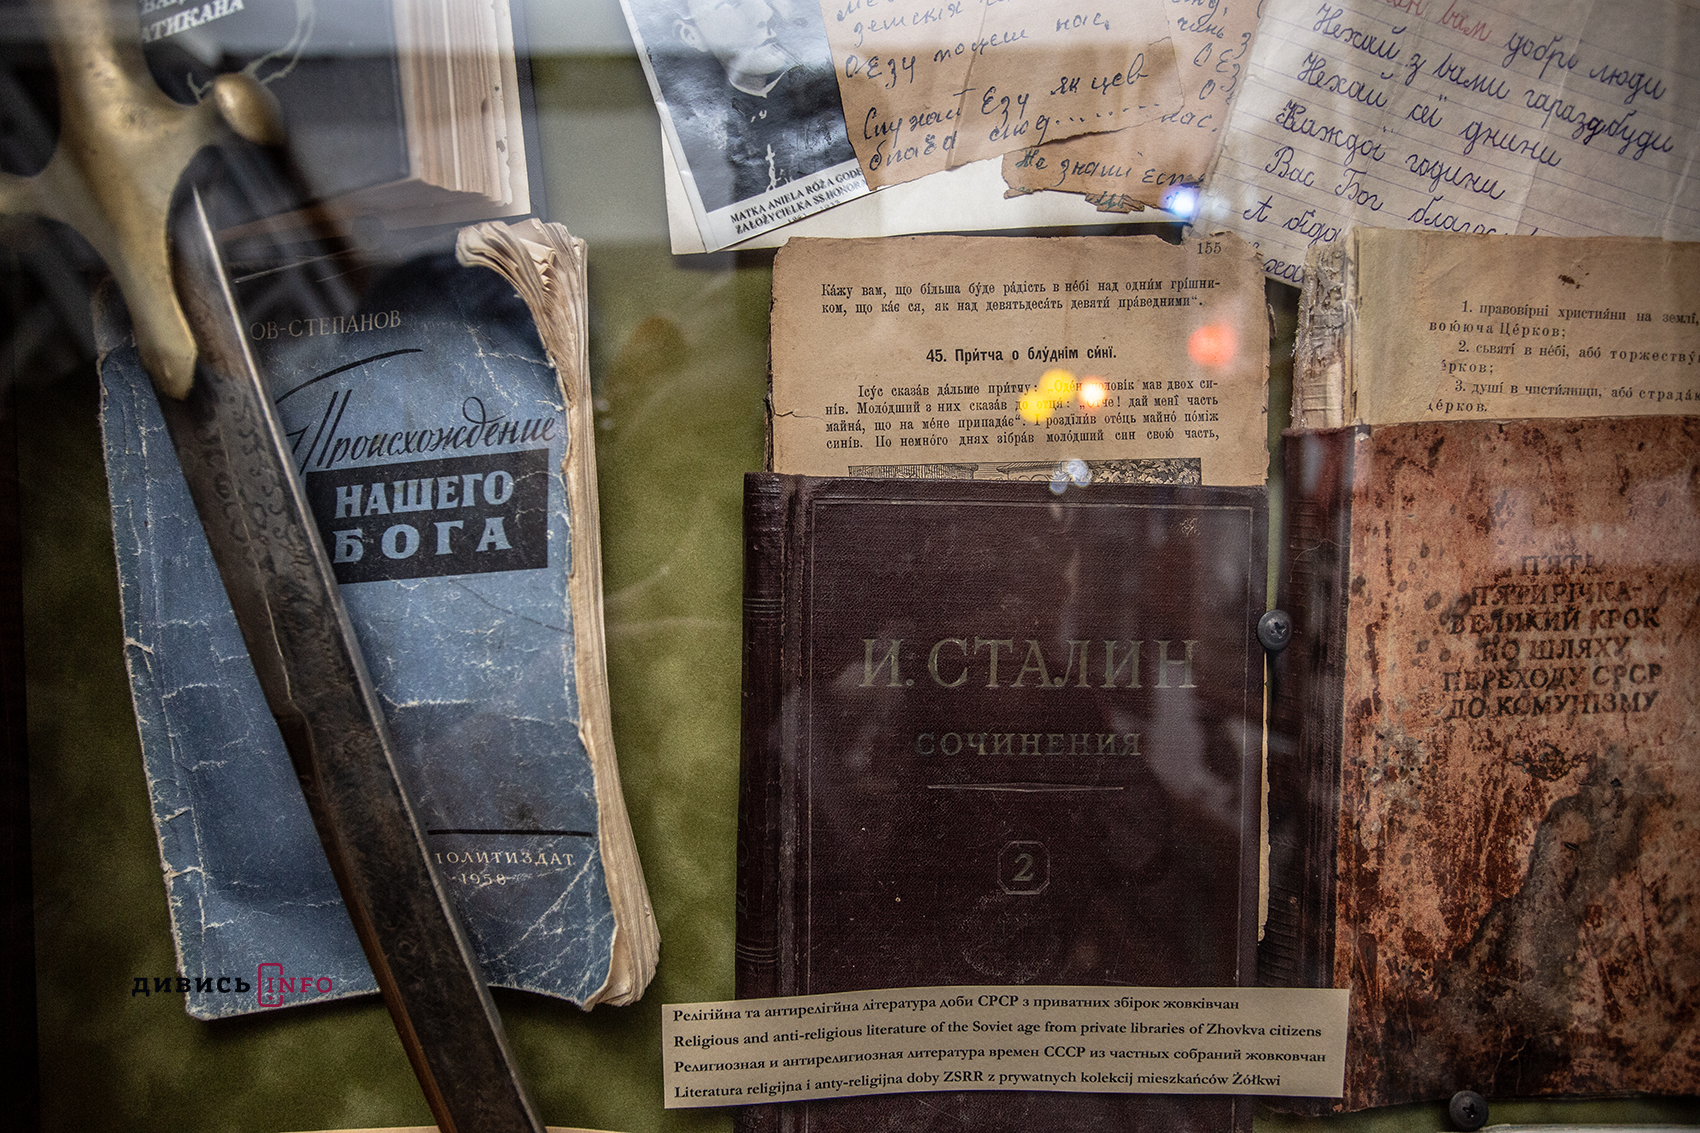 АТИКАНА
ОВ-СТЕПАНОВ
Происхождение
НАШЕГО
БОГА
ПОЛИТИЗДАТ
1958
MATKA ANIELA RÓŻA GODE
ZAŁOŻYCIELKA SS.HONORA
О Езу
нас.
Слухай Езу як цев
блага люд........ нас.
Не знаті
вам добрі люди
Нехай з вами гаразд буди
Нехай сєї днини
Каждої години
Вас Бог
А біда
155
Ка́жу вам, що бі́льша бу́де ра́дість в не́бі над одни́м грі́шни-
ком, що ка́є ся, як над девятьдеся́ть девяти́ пра́ведними“.
45. При́тча о блу́днім си́нї.
Ісу́с сказа́в да́льше при́тчу: „Оде́н чолові́к мав двох си-
нів. Моло́дший з них сказа́в до отця́: „О́тче! дай мені́ часть
майна́, що на ме́не припада́є“. І розділи́в оте́ць майно́ по́між
синів. По немно́гого днях зібра́в моло́дший син свою́ часть,
1. правові́рні християни на землі́,
вою́юча Це́рков;
2. сьвяті́ в не́бі, або́ торжеству́
е́рков;
3. душі́ в чисти́лищи, або́ страда́
це́рков.
И. СТАЛИН
СОЧИНЕНИЯ
2
П'ЯТА
П'ЯТИРІЧКА-
ВЕЛИКИЙ КРОК
ПО ШЛЯХУ
ПЕРЕХОДУ СРСР
ДО КОМУНІЗМУ
ДИВИСЬ INFO
Релігійна та антирелігійна література доби СРСР з приватних збірок жовківчан
Religious and anti-religious literature of the Soviet age from private libraries of Zhovkva citizens
Религиозная и антирелигиозная литература времен СССР из частных собраний жовковчан
Literatura religijna i anty-religijna doby ZSRR z prywatnych kolekcij mieszkańców Żółkwi